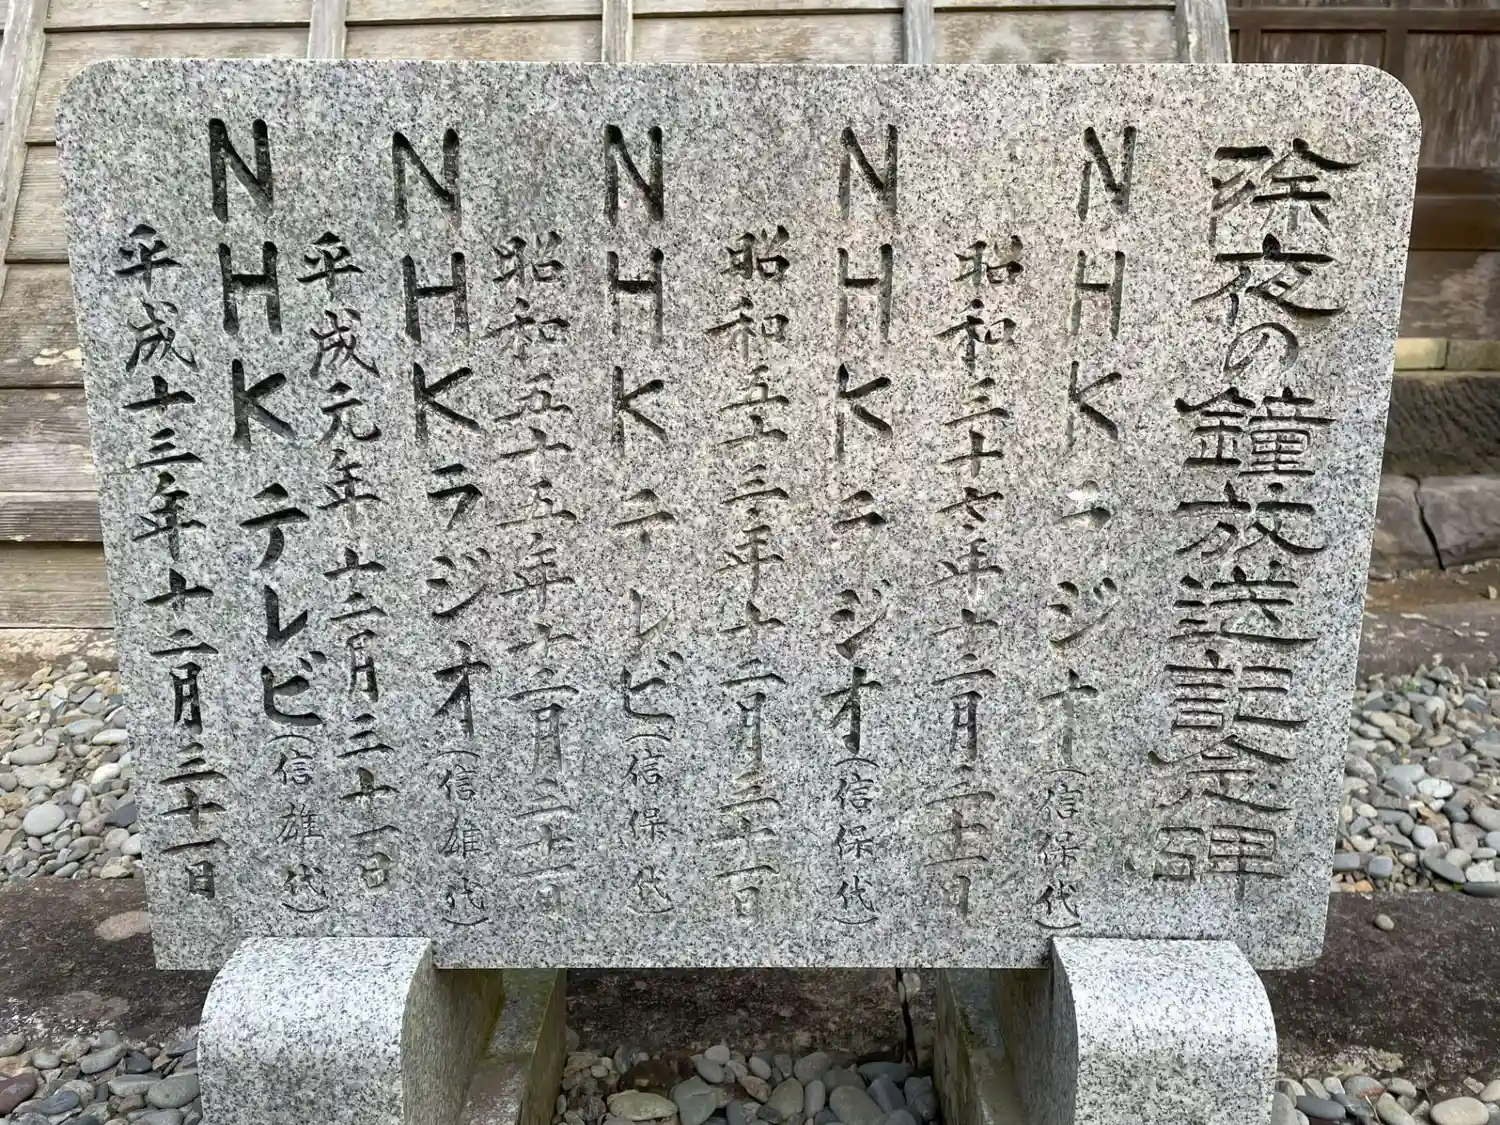 除夜の鐘放送記念碑
NHKラジオ(信保代)
昭和三十六年十二月三十一日
NHKラジオ(信保代)
昭和五十三年十二月三十一日
NHKテレビ(信保代)
昭和五十五年十二月三十一日
NHKラジオ(信雄代)
平成元年十二月三十一日
NHKテレビ(信雄代)
平成十三年十二月三十一日